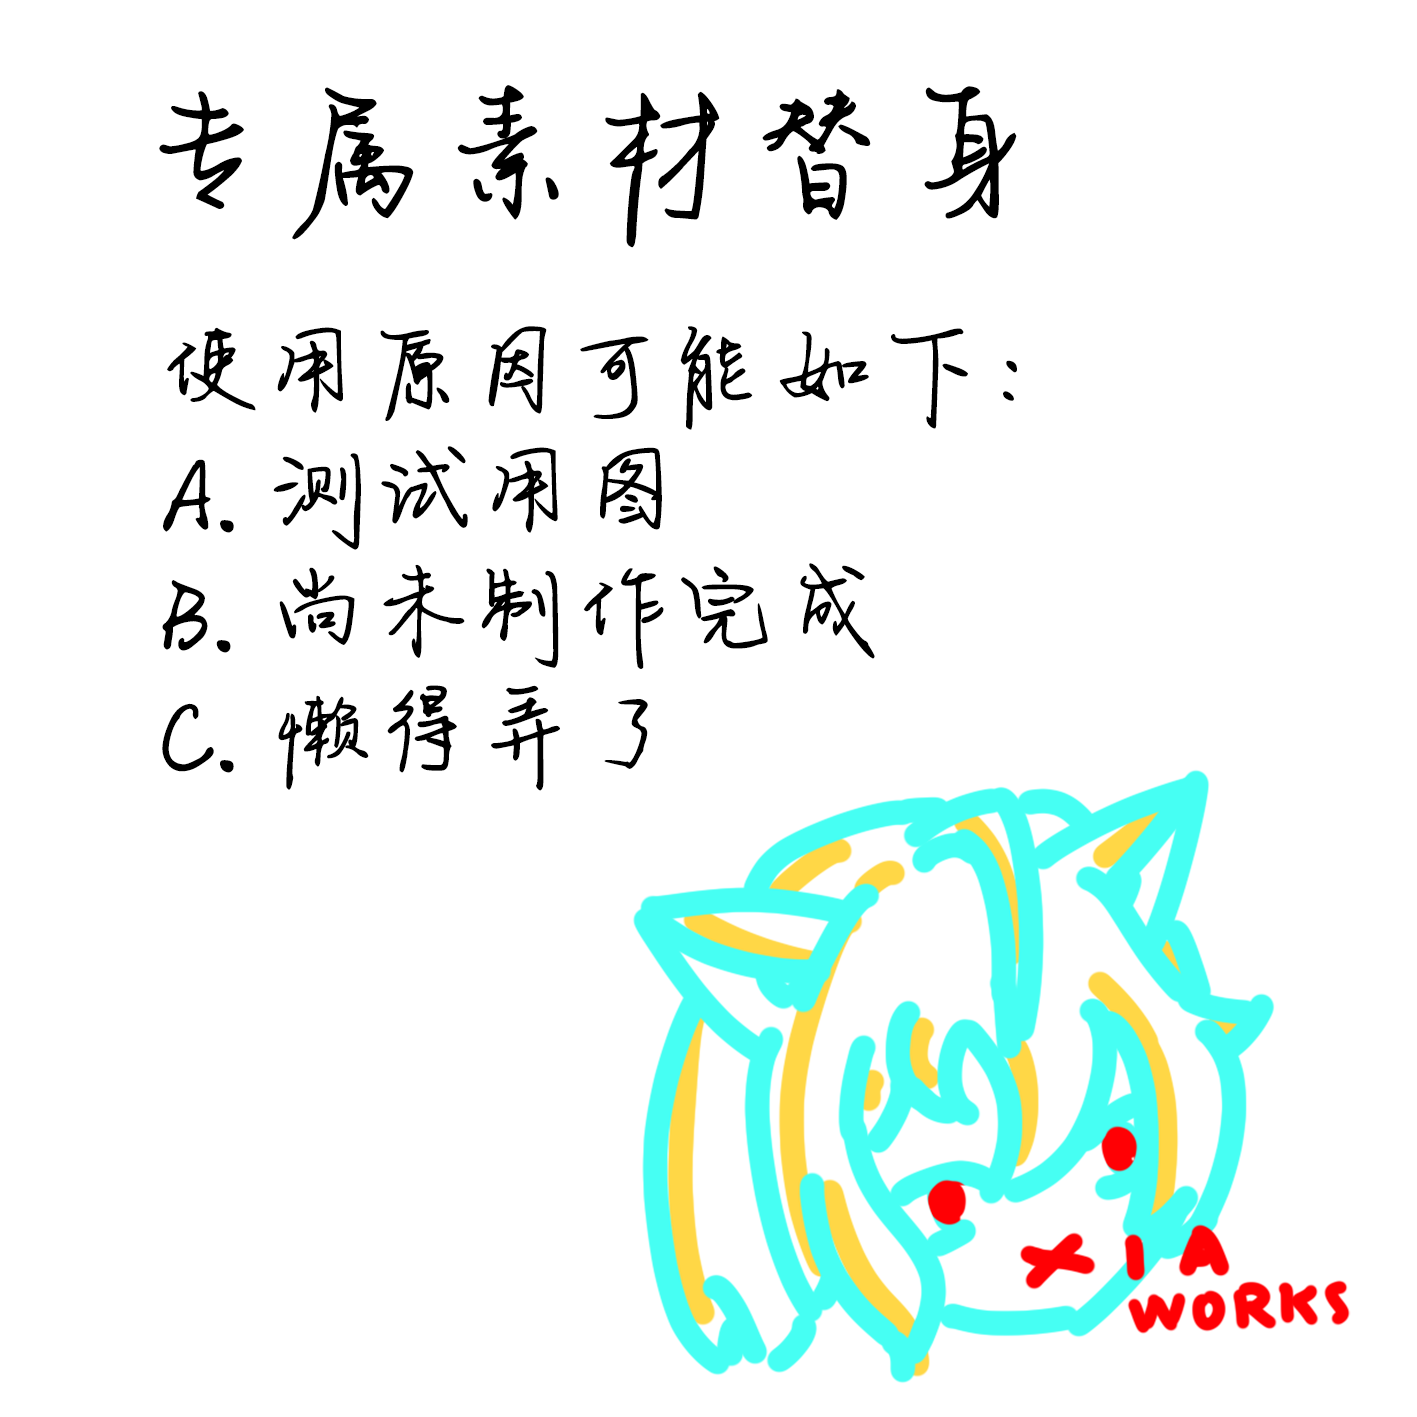 专属素材替身
使用原因可能如下：
A. 测试用图
B. 尚未制作完成
C. 懒得弄了
XIA
WORKS